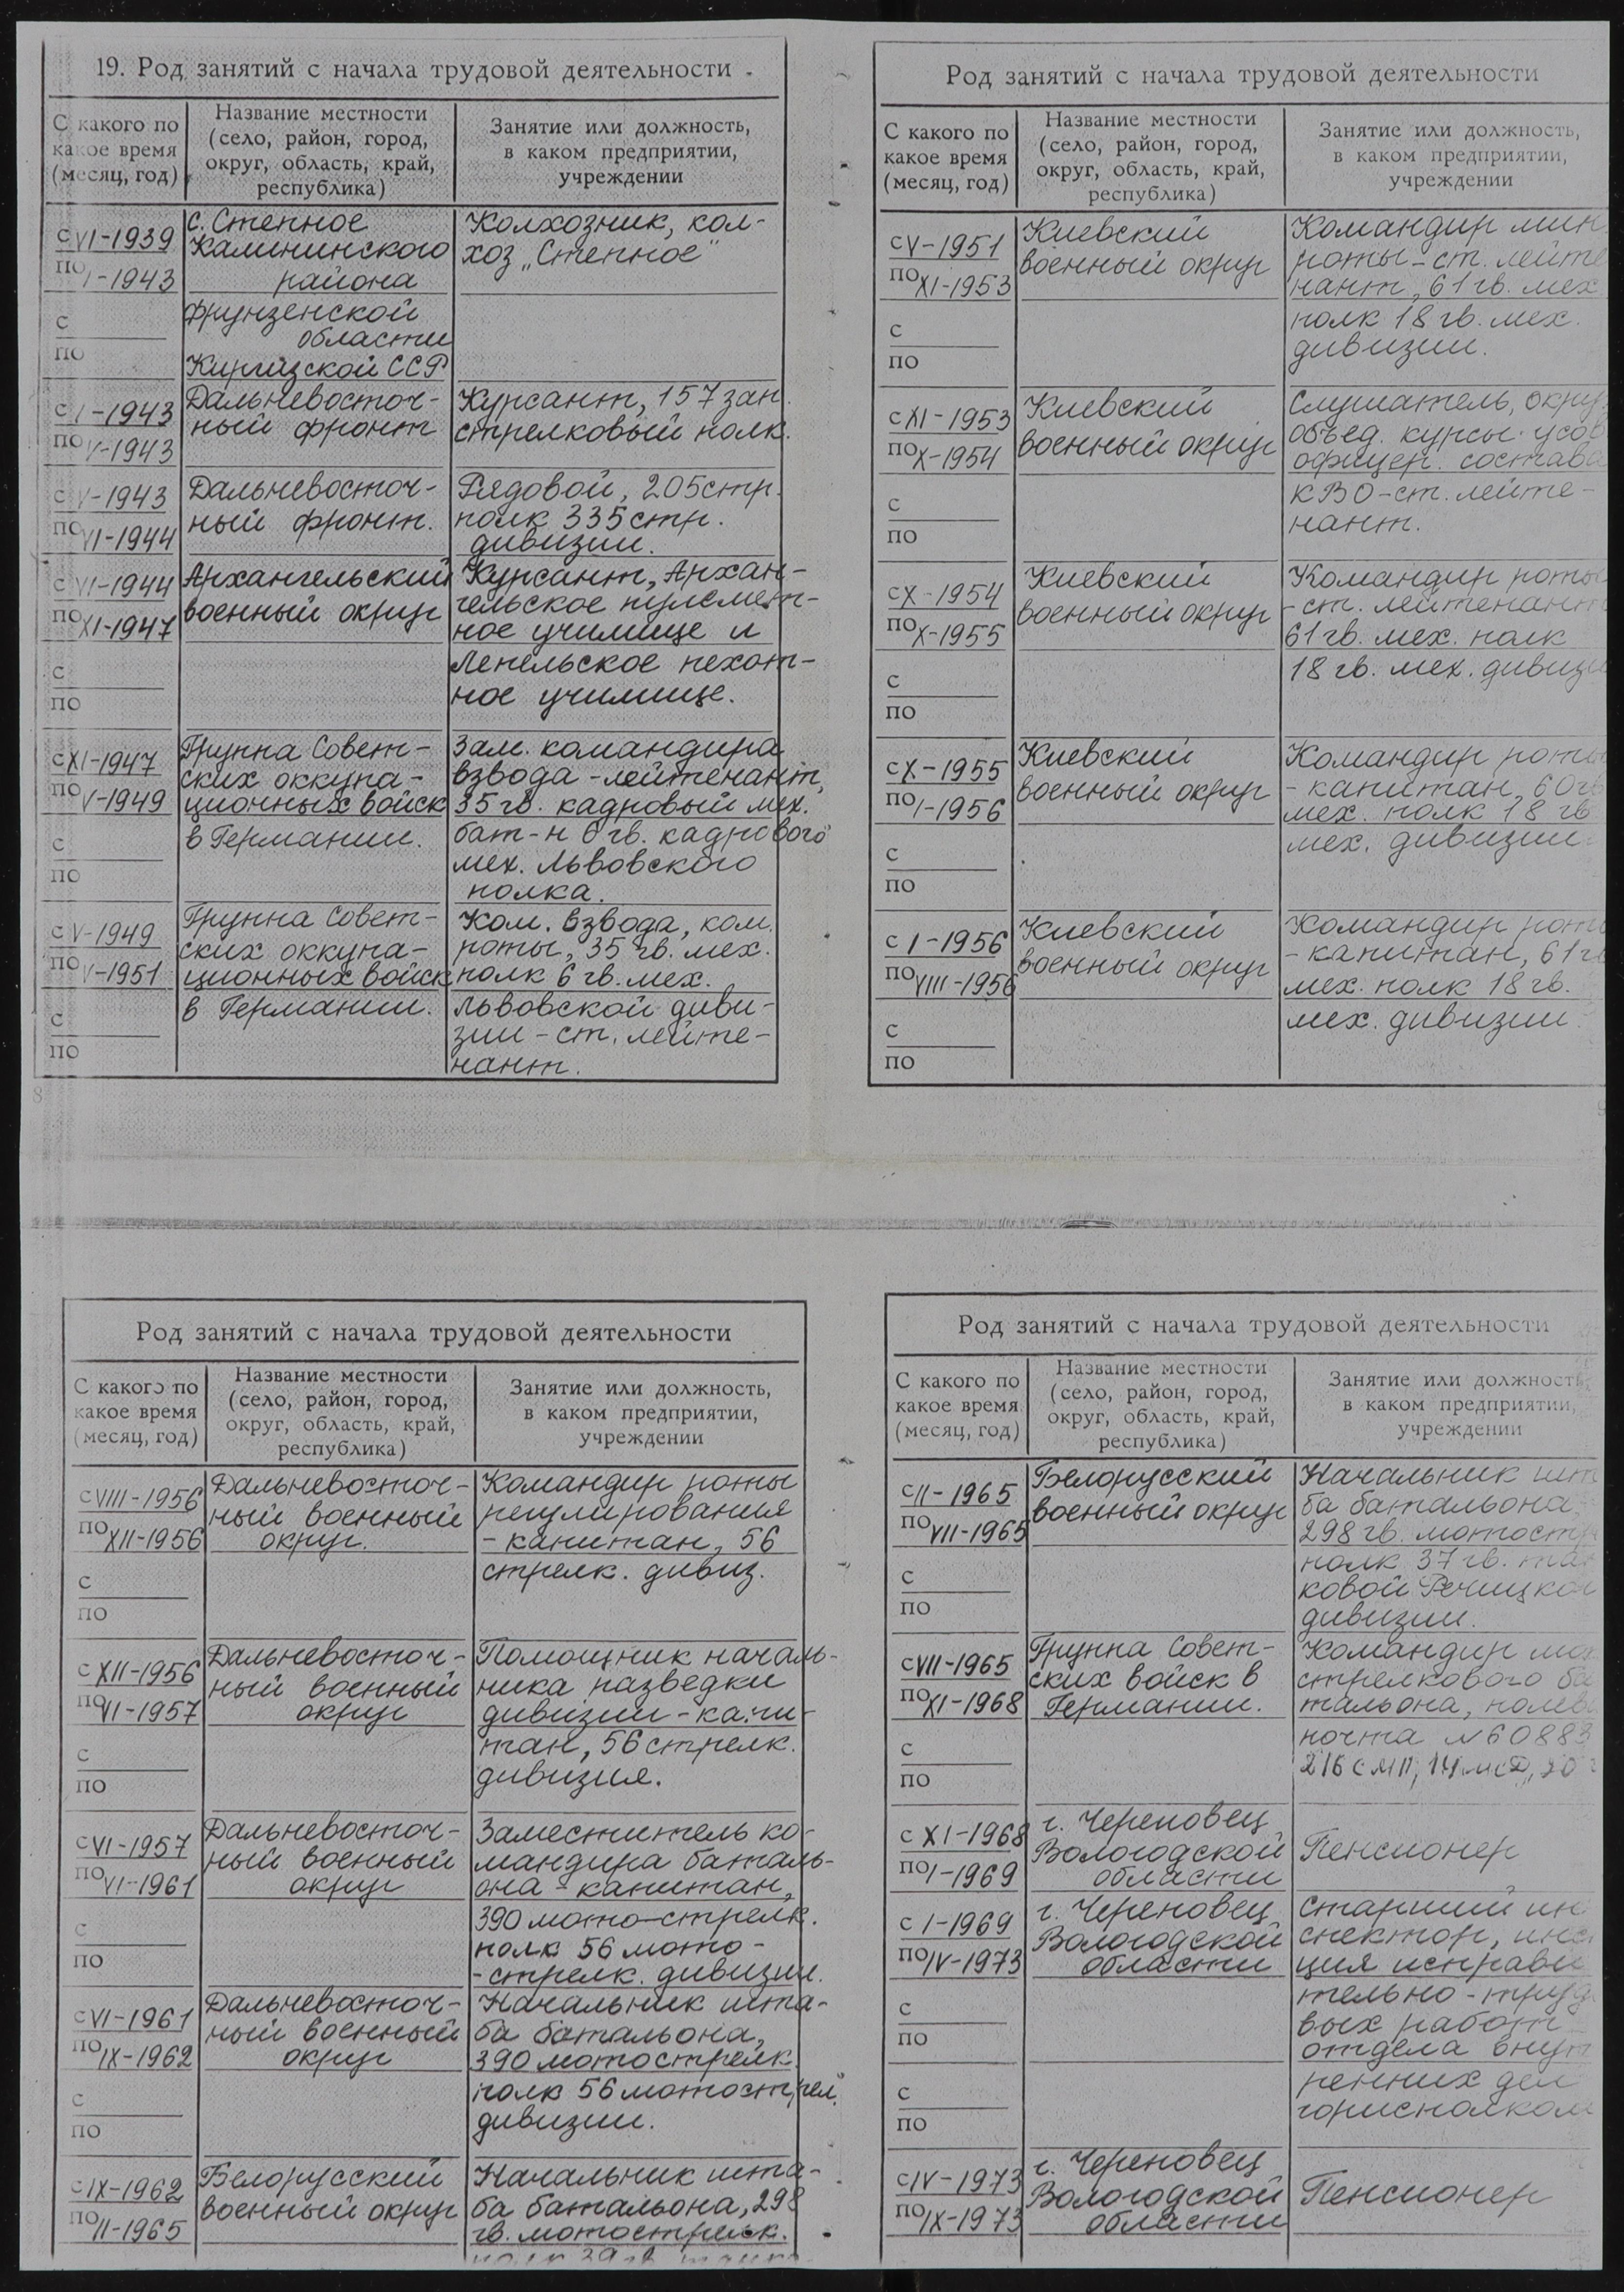 19. Род занятий с начала трудовой деятельности
С какого по какое время (месяц, год)
Название местности (село, район, город, округ, область, край, республика)
Занятие или должность, в каком предприятии, учреждении
с VI-1939
по I-1943
с. Степное
Калининского
района
Фрунзенской
области
Киргизской ССР
Колхозник, кол-
хоз „Степное"
с
по
с I-1943
по V-1943
Дальневосточ-
ный фронт
Курсант, 157 зап.
стрелковый полк.
с V-1943
по VI-1944
Дальневосточ-
ный фронт.
Рядовой, 205 стр.
полк 335 стр.
дивизии.
с VI-1944
по XI-1947
Архангельский
военный округ
Курсант, Архан-
гельское пулемет-
ное училище и
Лепельское пехот-
ное училище.
с
по
с XI-1947
по V-1949
Группа Совет-
ских оккупа-
ционных войск
в Германии.
Зам. командира
взвода - лейтенант,
35 гв. кадровый мех.
бат-н 6 гв. кадрового
мех. Львовского
полка.
с
по
с V-1949
по V-1951
Группа Совет-
ских оккупа-
ционных войск
в Германии.
Ком. взвода, ком.
роты, 35 гв. мех.
полк 6 гв. мех.
Львовской диви-
зии - ст. лейте-
нант.
с
по
8
Род занятий с начала трудовой деятельности
С какого по какое время (месяц, год)
Название местности (село, район, город, округ, область, край, республика)
Занятие или должность, в каком предприятии, учреждении
с V-1951
по XI-1953
Киевский
военный округ
Командир мин
роты - ст. лейте
нант, 61 гв. мех
полк 18 гв. мех.
дивизии.
с
по
с XI-1953
по X-1954
Киевский
военный округ
Слушатель, окру
объед. курсы усов
офицер. состава
КВО - ст. лейте-
нант.
с
по
с X-1954
по X-1955
Киевский
военный округ
Командир роты
- ст. лейтенант
61 гв. мех. полк
18 гв. мех. дивизи
с
по
с X-1955
по I-1956
Киевский
военный округ
Командир роты
- капитан, 60 гв
мех. полк 18 гв
мех. дивизии.
с
по
с I-1956
по VIII-1956
Киевский
военный округ
Командир роты
- капитан, 61 гв
мех. полк 18 гв.
мех. дивизии
с
по
Род занятий с начала трудовой деятельности
С какого по какое время (месяц, год)
Название местности (село, район, город, округ, область, край, республика)
Занятие или должность, в каком предприятии, учреждении
с VIII-1956
по XII-1956
Дальневосточ-
ный военный
округ.
Командир роты
регулирования
- капитан, 56
стрелк. дивиз.
с
по
с XII-1956
по VI-1957
Дальневосточ-
ный военный
округ
Помощник началь-
ника разведки
дивизии - капи-
тан, 56 стрелк.
дивизия.
с
по
с VI-1957
по VI-1961
Дальневосточ-
ный военный
округ
Заместитель ко-
мандира баталь-
она - капитан,
390 мото-стрелк.
полк 56 мото-
-стрелк. дивизии.
с
по
с VI-1961
по IX-1962
Дальневосточ-
ный военный
округ
Начальник шта-
ба батальона,
390 мотострелк.
полк 56 мотострел.
дивизии.
с
по
с IX-1962
по II-1965
Белорусский
военный округ
Начальник шта-
ба батальона, 298
гв. мотострелк.
Род занятий с начала трудовой деятельности
С какого по какое время (месяц, год)
Название местности (село, район, город, округ, область, край, республика)
Занятие или должность, в каком предприятии, учреждении
с II-1965
по VII-1965
Белорусский
военный округ
Начальник шта
ба батальона,
298 гв. мотостр
полк 37 гв. тан
ковой Речицкой
дивизии.
с
по
с VII-1965
по XI-1968
Группа Совет-
ских войск в
Германии.
Командир мот
стрелкового ба
тальона, полев
почта №60883
216 СМП, 14 мсд, 20
с
по
с XI-1968
по I-1969
г. Череповец,
Вологодской
области
Пенсионер
с I-1969
по IV-1973
г. Череповец,
Вологодской
области
Старший ин
спектор, инс
ция исправи
тельно-трудо
вых работ
отдела внут
ренних дел
горисполком
с
по
с
по
с IV-1973
по IX-1973
г. Череповец
Вологодской
области
Пенсионер